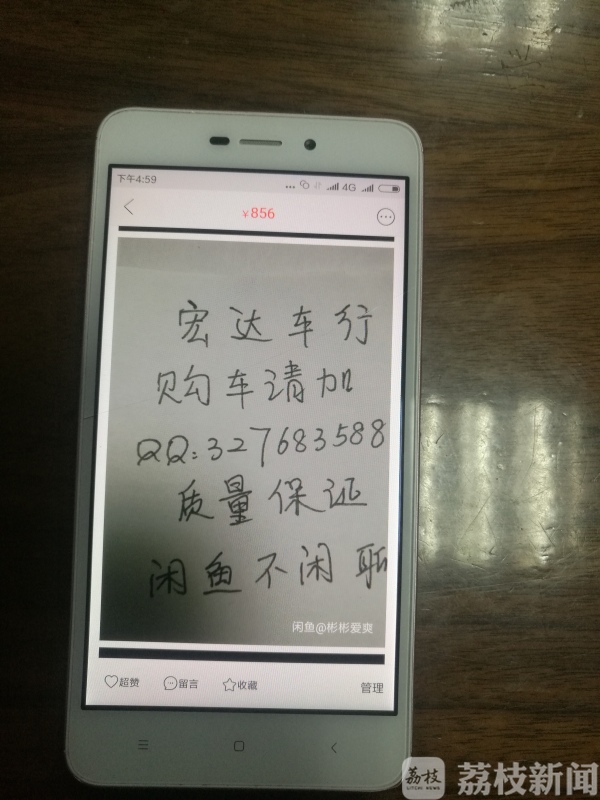 下午4:59
... 4G
¥856
宏达车行
购车请加
QQ:327683588
质量保证
闲鱼不闲聊
闲鱼@彬彬爱爽
超赞 留言 收藏 管理
荔枝
LITCHI NEWS
荔枝新闻